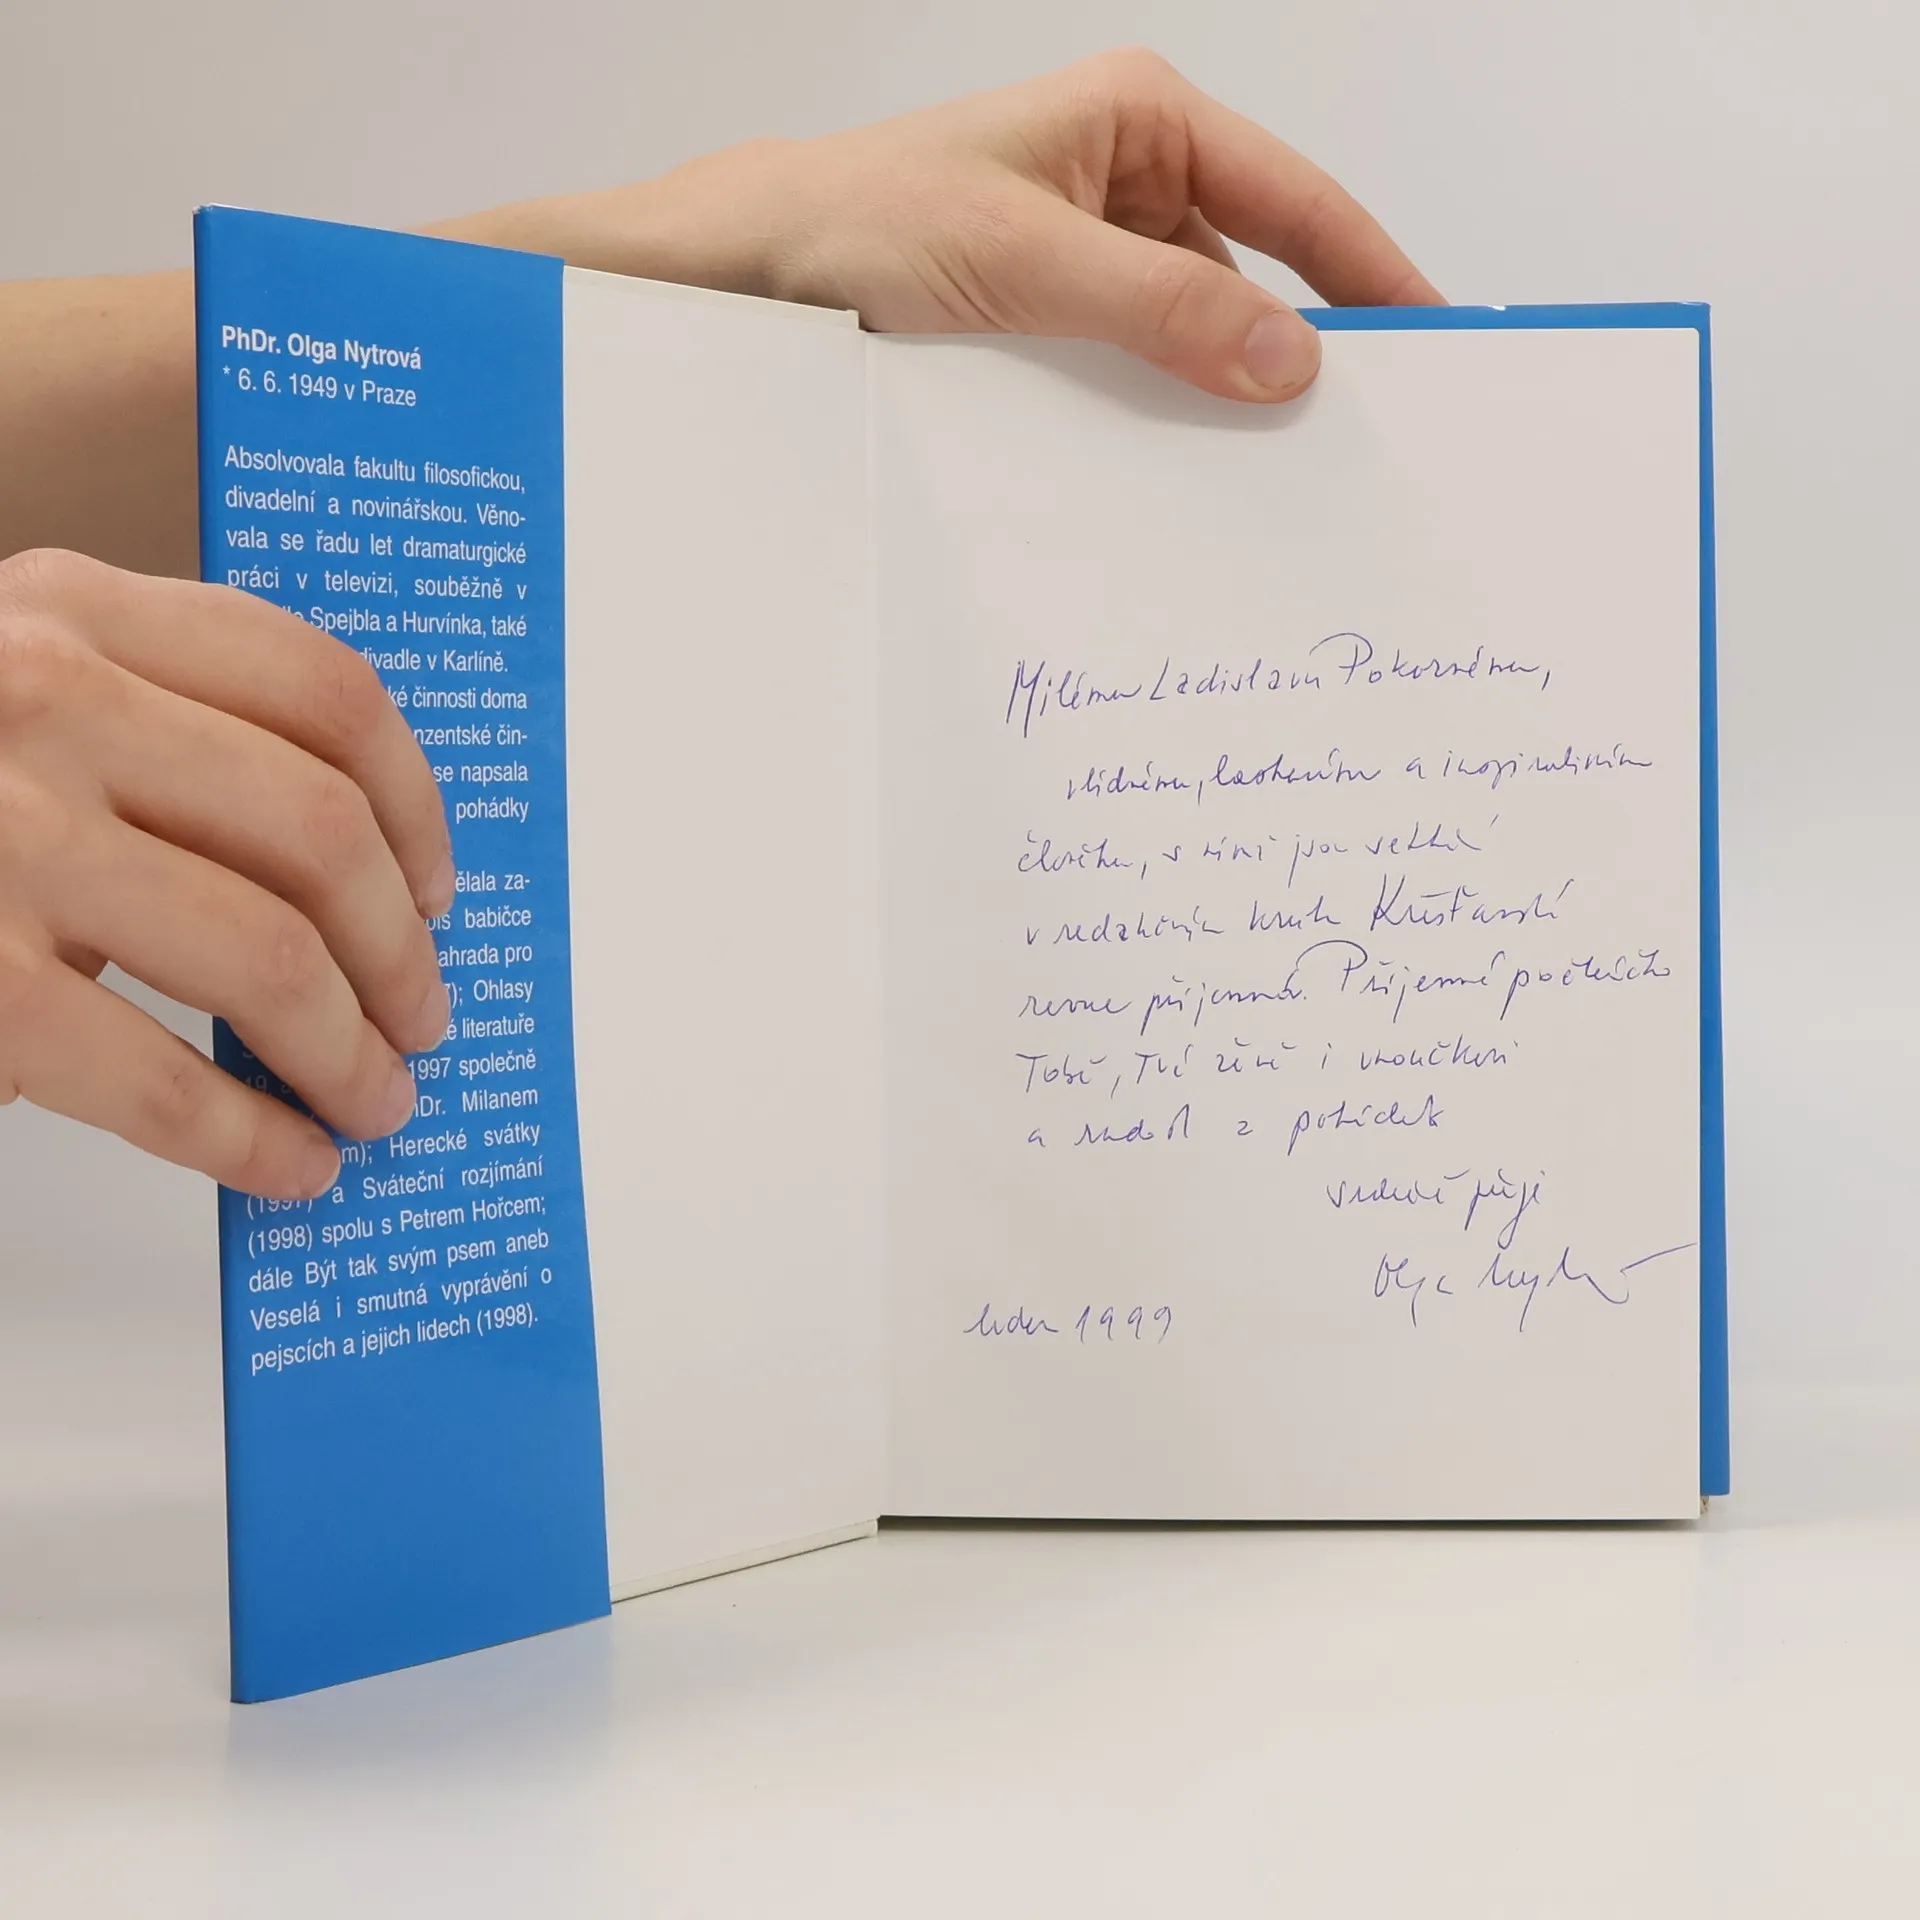 PhDr. Olga Nytrová
* 6. 6. 1949 v Praze
Absolvovala fakultu filosofickou,
divadelní a novinářskou. Věno-
vala se řadu let dramaturgické
práci v televizi, souběžně v
Spejbla a Hurvínka, také
divadle v Karlíně.
ké činnosti doma
nzentské čin-
se napsala
pohádky
ělala za-
babičce
ahrada pro
7); Ohlasy
é literatuře
19. 1997 společně
Dr. Milanem
m); Herecké svátky
(1997) a Sváteční rozjímání
(1998) spolu s Petrem Hořcem;
dále Být tak svým psem aneb
Veselá i smutná vyprávění o
pejscích a jejich lidech (1998).
Milému Ladislavu Pokornému,
vlídnému, laskavému a inspirativnímu
člověku, s nímž jsou setkání
v redakčním kruhu Křesťanské
revue příjemná. Příjemné počteníčko
Tobě, Tvé ženě i vnoučkovi
a radost z pohádek
srdečně přeje
Olga Nytrová
leden 1999